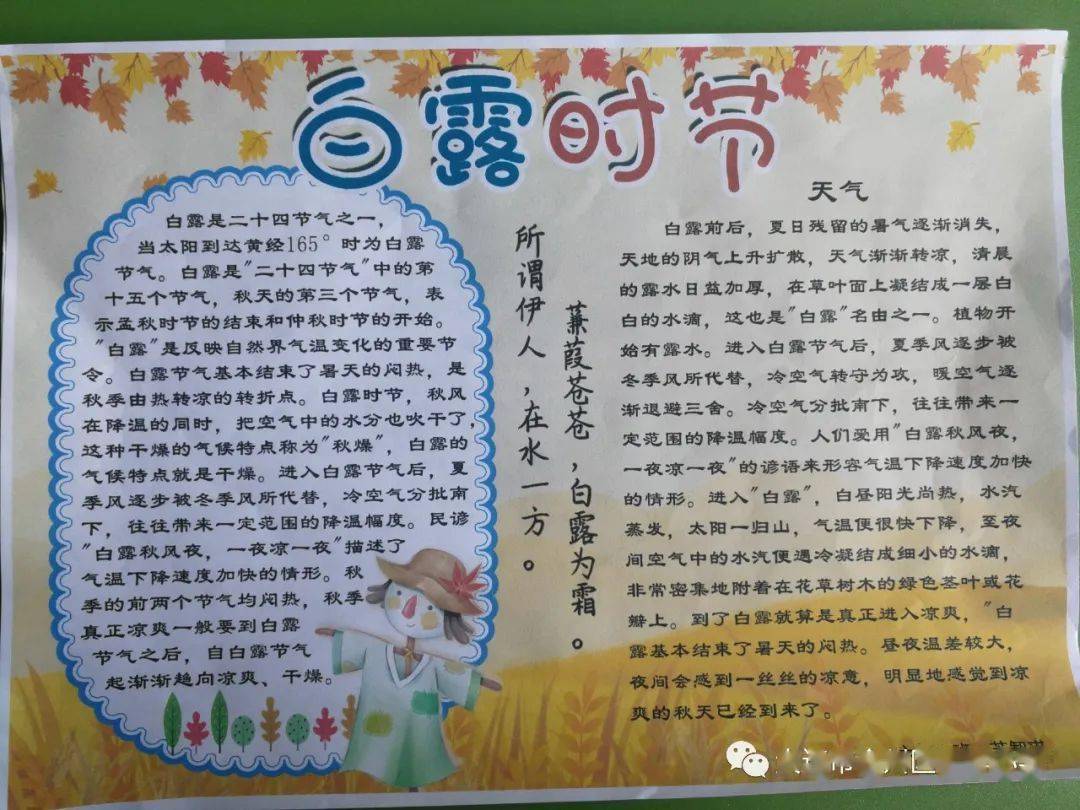 白露时节
白露是二十四节气之一，
当太阳到达黄经165°时为白露
节气。白露是"二十四节气"中的第
十五个节气，秋天的第三个节气，表
示孟秋时节的结束和仲秋时节的开始。
"白露"是反映自然界气温变化的重要节
令。白露节气基本结束了暑天的闷热，是
秋季由热转凉的转折点。白露时节，秋风
在降温的同时，把空气中的水分也吹干了，
这种干燥的气候特点称为"秋燥"，白露的
气候特点就是干燥。进入白露节气后，夏
季风逐步被冬季风所代替，冷空气分批南
下，往往带来一定范围的降温幅度。民谚
"白露秋风夜，一夜凉一夜"描述了
气温下降速度加快的情形。秋
季的前两个节气均闷热，秋季
真正凉爽一般要到白露
节气之后，自白露节气
起渐渐趋向凉爽、干燥。
蒹葭苍苍，白露为霜。
所谓伊人，在水一方。
天气
白露前后，夏日残留的暑气逐渐消失，
天地的阴气上升扩散，天气渐渐转凉，清晨
的露水日益加厚，在草叶面上凝结成一层白
白的水滴，这也是"白露"名由之一。植物开
始有露水。进入白露节气后，夏季风逐步被
冬季风所代替，冷空气转守为攻，暖空气逐
渐退避三舍。冷空气分批南下，往往带来一
定范围的降温幅度。人们爱用"白露秋风夜，
一夜凉一夜"的谚语来形容气温下降速度加快
的情形。进入"白露"，白昼阳光尚热，水汽
蒸发，太阳一归山，气温便很快下降，至夜
间空气中的水汽便遇冷凝结成细小的水滴，
非常密集地附着在花草树木的绿色茎叶或花
瓣上。到了白露就算是真正进入凉爽，"白
露基本结束了暑天的闷热。昼夜温差较大，
夜间会感到一丝丝的凉意，明显地感觉到凉
爽的秋天已经到来了。